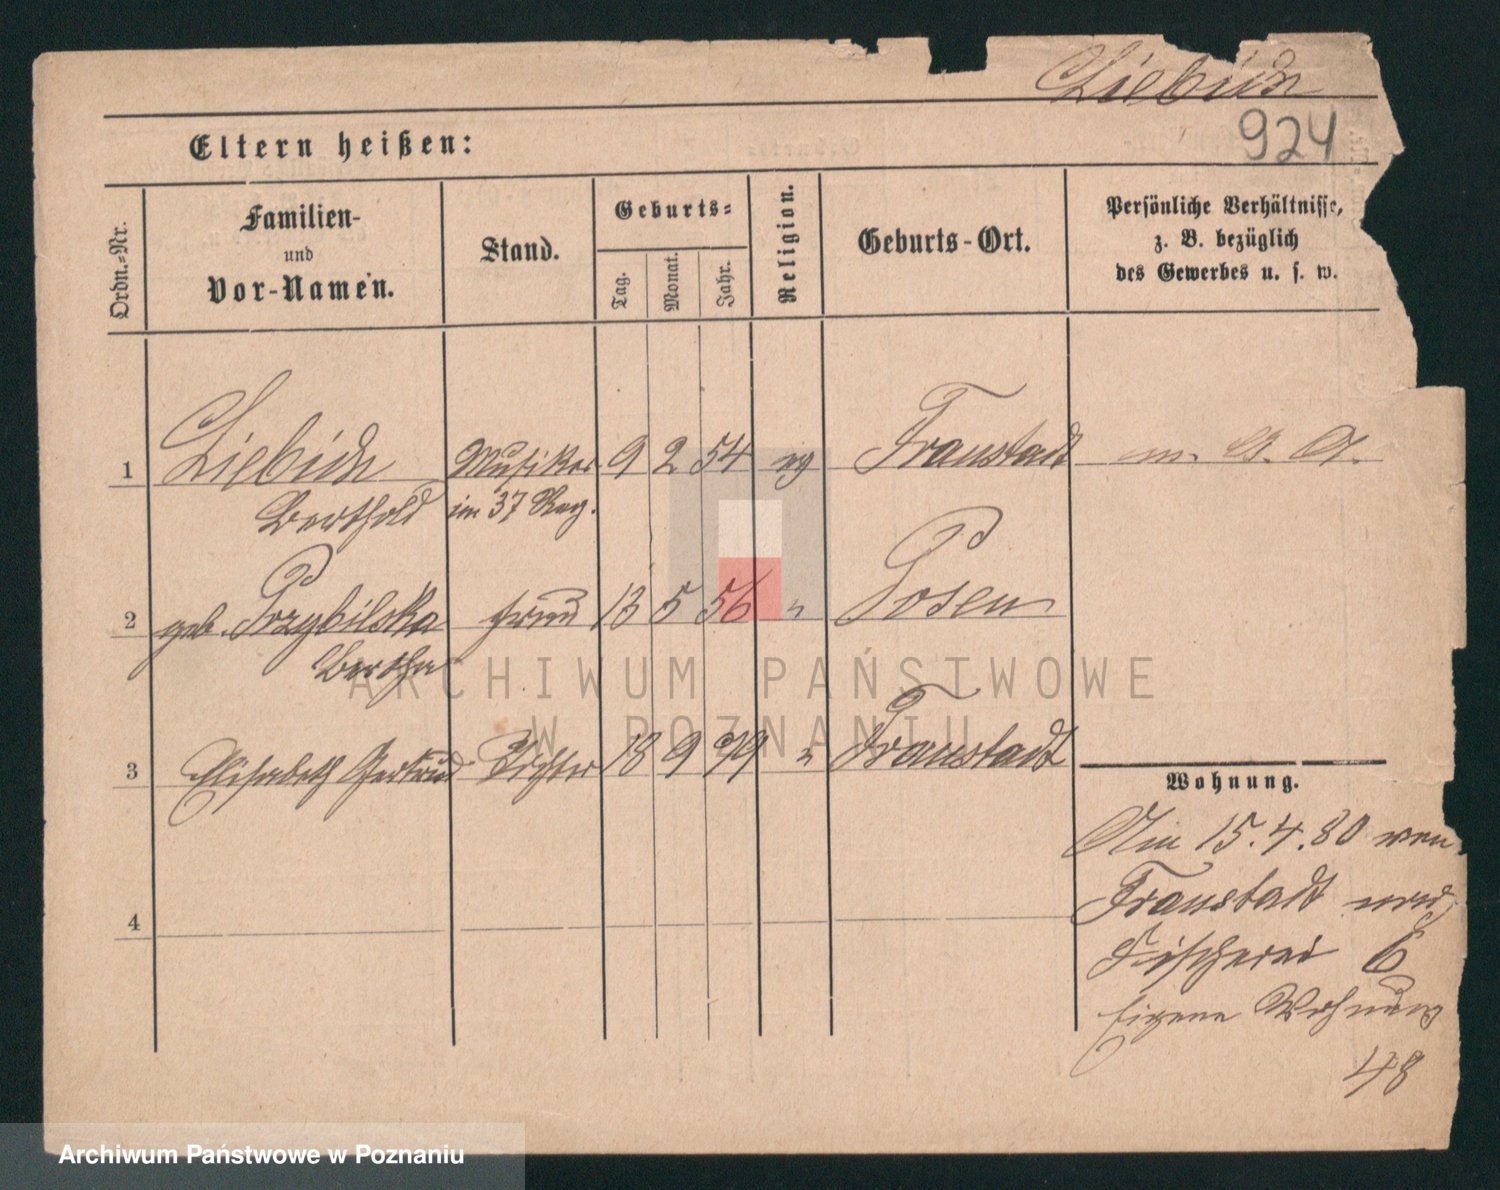 Liebich
924
Eltern heißen:
Ordn.-Nr.
Familien-
und
Vor-Namen.
Stand.
Geburts-
Tag.
Monat.
Jahr.
Religion.
Geburts-Ort.
Persönliche Verhältnisse,
z. B. bezüglich
des Gewerbes u. s. w.
1 Liebich Musiker 9 2 54 Fraustadt
Berthold im 37 Reg.
2 geb. Przybilska Frau 13 5 56 " Posen
Bertha
3 Elisabeth Gertrud Tochter 18 9 79 " Fraustadt
4
Wohnung.
Am 15.4.80 von
Fraustadt
Fischerei 6
Eigene Wohnung
48
ARCHIWUM PAŃSTWOWE
W POZNANIU
Archiwum Państwowe w Poznaniu